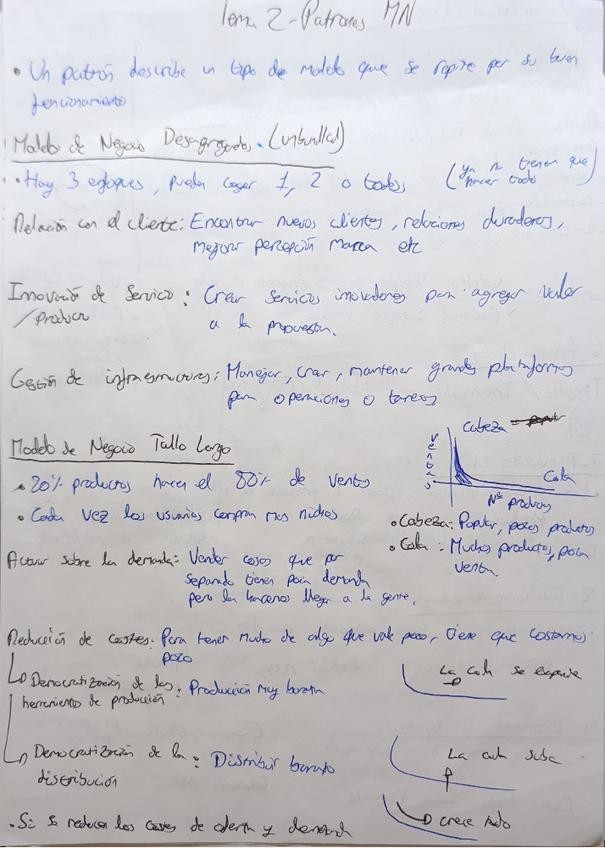 Tema 2 - Patrones MN
• Un patrón describe un tipo de modelo que se repite por su buen
funcionamiento
Modelo de Negocio Desagregados. (Unbundled)
• Hay 3 enfoques, pueden coger 1, 2 o todos (ya no tienen que
hacer todo)
Relación con el cliente: Encontrar nuevos clientes, relaciones duraderas,
mejorar percepción marca etc
Innovación de Servicio: Crear servicios innovadores para agregar valor
/Producto a la propuesta.
Gestión de infraestructuras: Manejar, crear, mantener grandes plataformas
para operaciones o tareas
Modelo de Negocio Tallo Largo
Cabeza
Ventas
Cola
Nº productos
• 20% productos hacen el 80% de ventas
• Cada vez los usuarios compran mas nichos
• Cabeza: Popular, pocos productos
• Cola: Muchos productos, poca
venta
Actuar sobre la demanda: Vender cosas que por
separado tienen poca demanda
pero la hacemos llegar a la gente.
Reducción de costes: Para tener mucho de algo que vale poco, tiene que costarnos
poco
Democratización de las: Producción muy barata
herramientas de producción
La cola se expande
Democratización de la: Distribuir barato
distribución
La cola sube
• Si se reducen los costes de oferta y demanda
crece todo